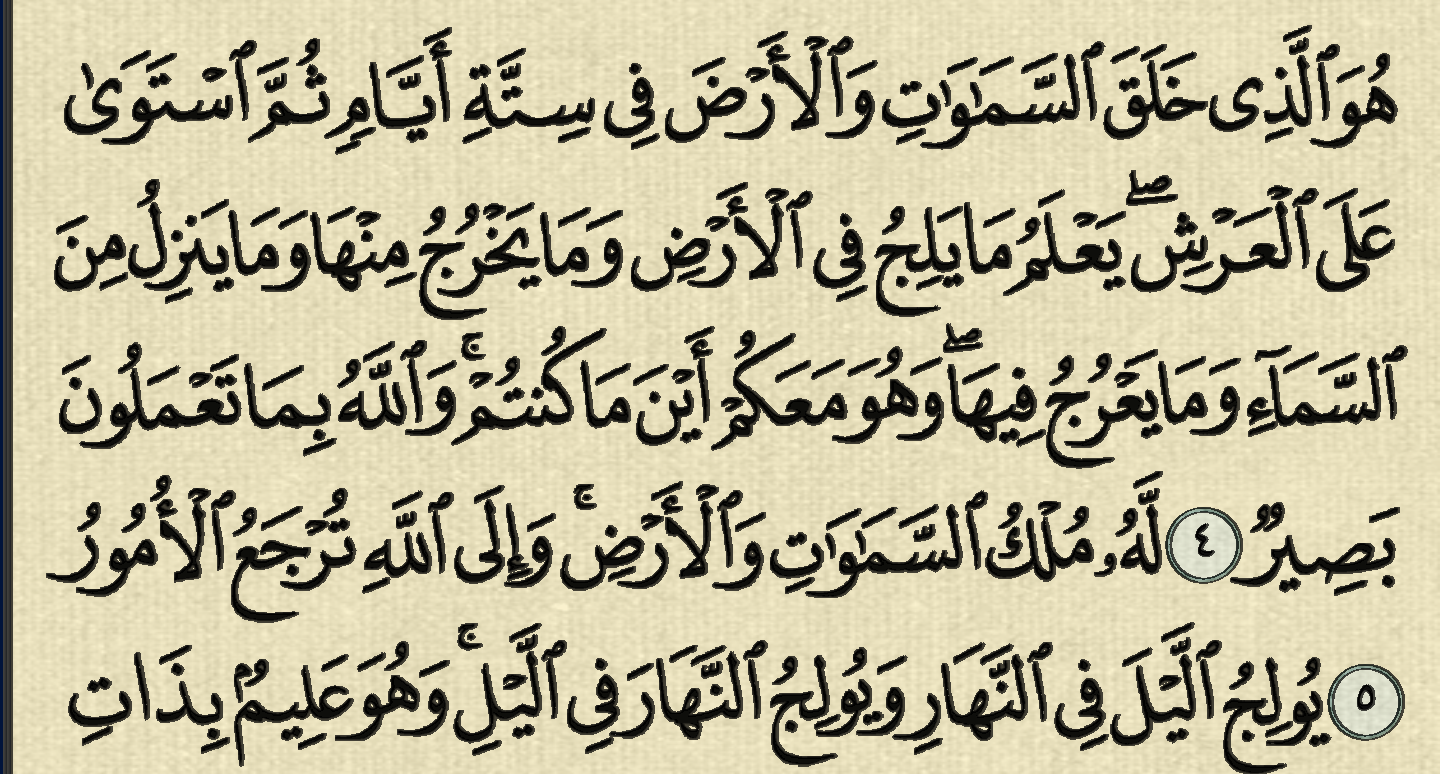 هُوَ ٱلَّذِى خَلَقَ ٱلسَّمَٰوَٰتِ وَٱلْأَرْضَ فِى سِتَّةِ أَيَّامٍ ثُمَّ ٱسْتَوَىٰ
عَلَى ٱلْعَرْشِ ۖ يَعْلَمُ مَا يَلِجُ فِى ٱلْأَرْضِ وَمَا يَخْرُجُ مِنْهَا وَمَا يَنزِلُ مِنَ
ٱلسَّمَآءِ وَمَا يَعْرُجُ فِيهَا ۖ وَهُوَ مَعَكُمْ أَيْنَ مَا كُنتُمْ ۚ وَٱللَّهُ بِمَا تَعْمَلُونَ
بَصِيرٌ ٤ لَّهُۥ مُلْكُ ٱلسَّمَٰوَٰتِ وَٱلْأَرْضِ ۚ وَإِلَى ٱللَّهِ تُرْجَعُ ٱلْأُمُورُ
٥ يُولِجُ ٱلَّيْلَ فِى ٱلنَّهَارِ وَيُولِجُ ٱلنَّهَارَ فِى ٱلَّيْلِ ۚ وَهُوَ عَلِيمٌۢ بِذَاتِ